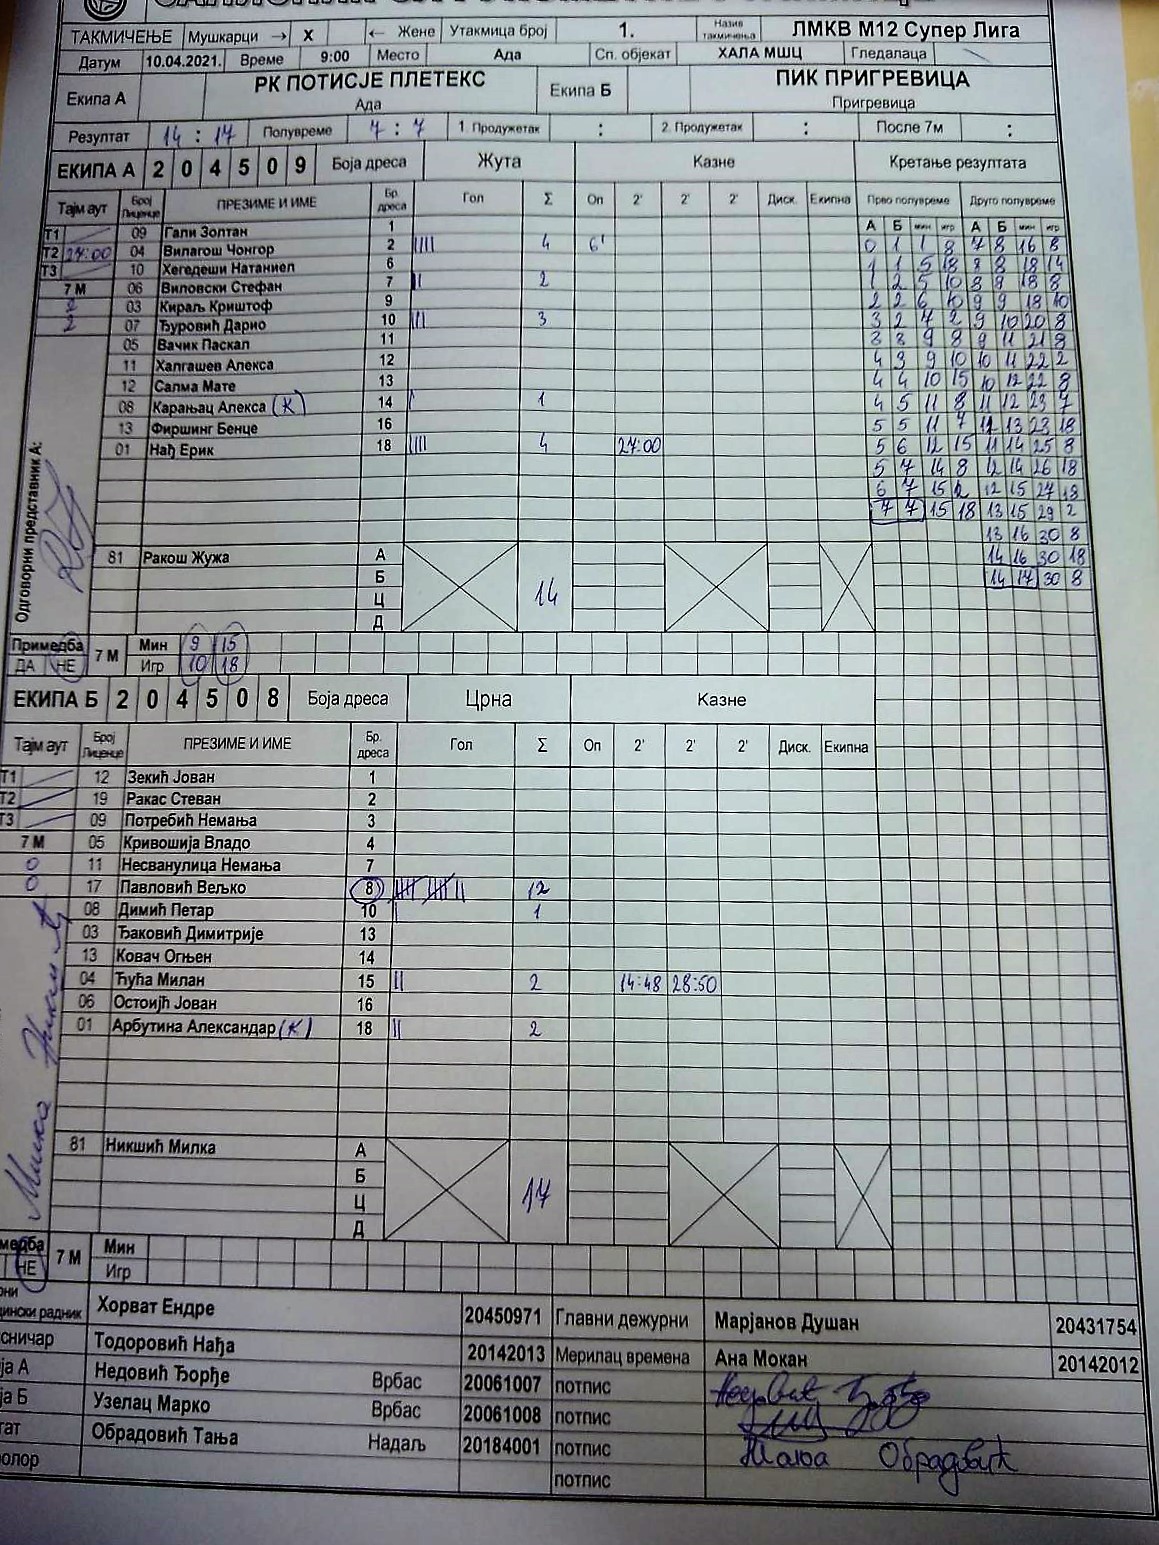 ТАКМИЧЕЊЕ Мушкарци → X ← Жене Утакмица број 1. Назив такмичења ЛМКВ М12 Супер Лига
Датум 10.04.2021. Време 9:00 Место Ада Сп. објекат ХАЛА МШЦ Гледалаца
Екипа А РК ПОТИСЈЕ ПЛЕТЕКС Ада Екипа Б ПИК ПРИГРЕВИЦА Пригревица
Резултат 14 : 17 Полувреме 7 : 7 1. Продужетак : 2. Продужетак : После 7м :
ЕКИПА А 2 0 4 5 0 9 Боја дреса Жута Казне Кретање резултата
Тајм аут Број Лиценце ПРЕЗИМЕ И ИМЕ Бр. дреса Гол Σ Оп 2' 2' 2' Диск. Екипна Прво полувреме Друго полувреме
А Б мин игр А Б мин игр
Т1 09 Гали Золтан 1
0 1 1 8 7 8 16 8
Т2 27:00 04 Вилагош Чонгор 2 |||| 4 6'
1 1 5 18 8 8 18 14
Т3 10 Хегедеши Натаниел 6
1 2 5 10 8 9 18 8
7 М 06 Виловски Стефан 7 || 2
2 2 6 10 9 9 18 10
2 03 Кираљ Криштоф 9
3 2 7 2 9 10 20 8
2 07 Ђуровић Дарио 10 ||| 3
3 3 9 8 9 11 21 8
05 Вачик Паскал 11
4 3 9 10 10 11 22 2
11 Халгашев Алекса 12
4 4 10 15 10 12 22 8
12 Салма Мате 13
4 5 11 8 11 12 23 7
08 Карањац Алекса (К) 14 | 1
5 5 11 7 11 13 23 18
13 Фиршинг Бенце 16
5 6 12 15 11 14 25 8
01 Нађ Ерик 18 |||| 4 27:00
5 7 14 8 12 14 26 18
6 7 15 2 12 15 27 18
7 7 15 18 13 15 29 2
13 16 30 8
14 16 30 18
14 17 30 8
Одговорни представник А:
81 Ракош Жужа А
Б 14
Ц
Д
Примедба 7 М Мин 9 15
ДА НЕ Игр 10 18
ЕКИПА Б 2 0 4 5 0 8 Боја дреса Црна Казне
Тајм аут Број Лиценце ПРЕЗИМЕ И ИМЕ Бр. дреса Гол Σ Оп 2' 2' 2' Диск. Екипна
Т1 12 Зекић Јован 1
Т2 19 Ракас Стеван 2
Т3 09 Потребић Немања 3
7 М 05 Кривошија Владо 4
0 11 Несванулица Немања 7
0 17 Павловић Вељко 8 12
08 Димић Петар 10 | 1
03 Ђаковић Димитрије 13
13 Ковач Огњен 14
04 Ћућа Милан 15 || 2 14:48 28:50
06 Остоијћ Јован 16
01 Арбутина Александар (К) 18 || 2
81 Никшић Милка А
Б 17
Ц
Д
медба 7 М Мин
НЕ Игр
Хорват Ендре 20450971 Главни дежурни Марјанов Душан 20431754
Тодоровић Нађа 20142013 Мерилац времена Ана Мокан 20142012
Недовић Ђорђе Врбас 20061007 потпис
Узелац Марко Врбас 20061008 потпис
Обрадовић Тања Надаљ 20184001 потпис Тања Обрадовић
потпис